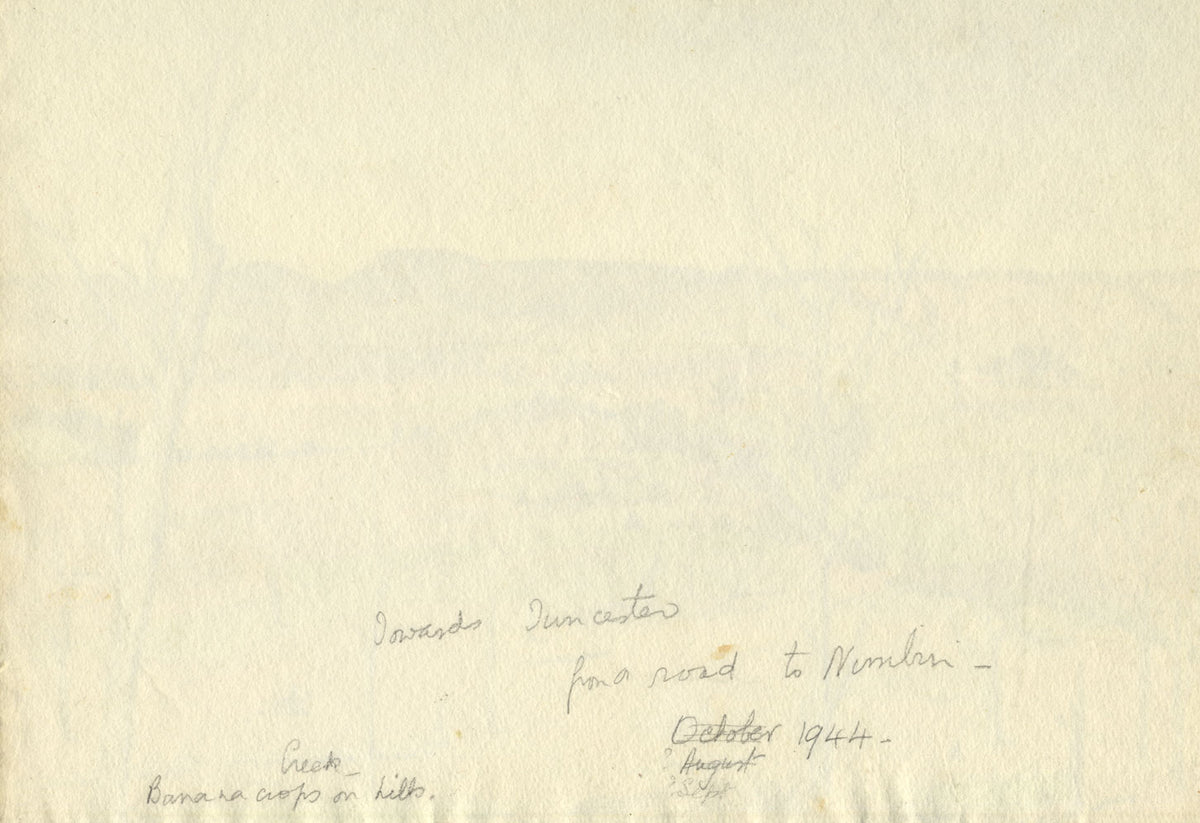 Towards Tuncester
from a road to Nimbin -
October 1944 -
? August
? Sept
Creek -
Banana crops on hills.